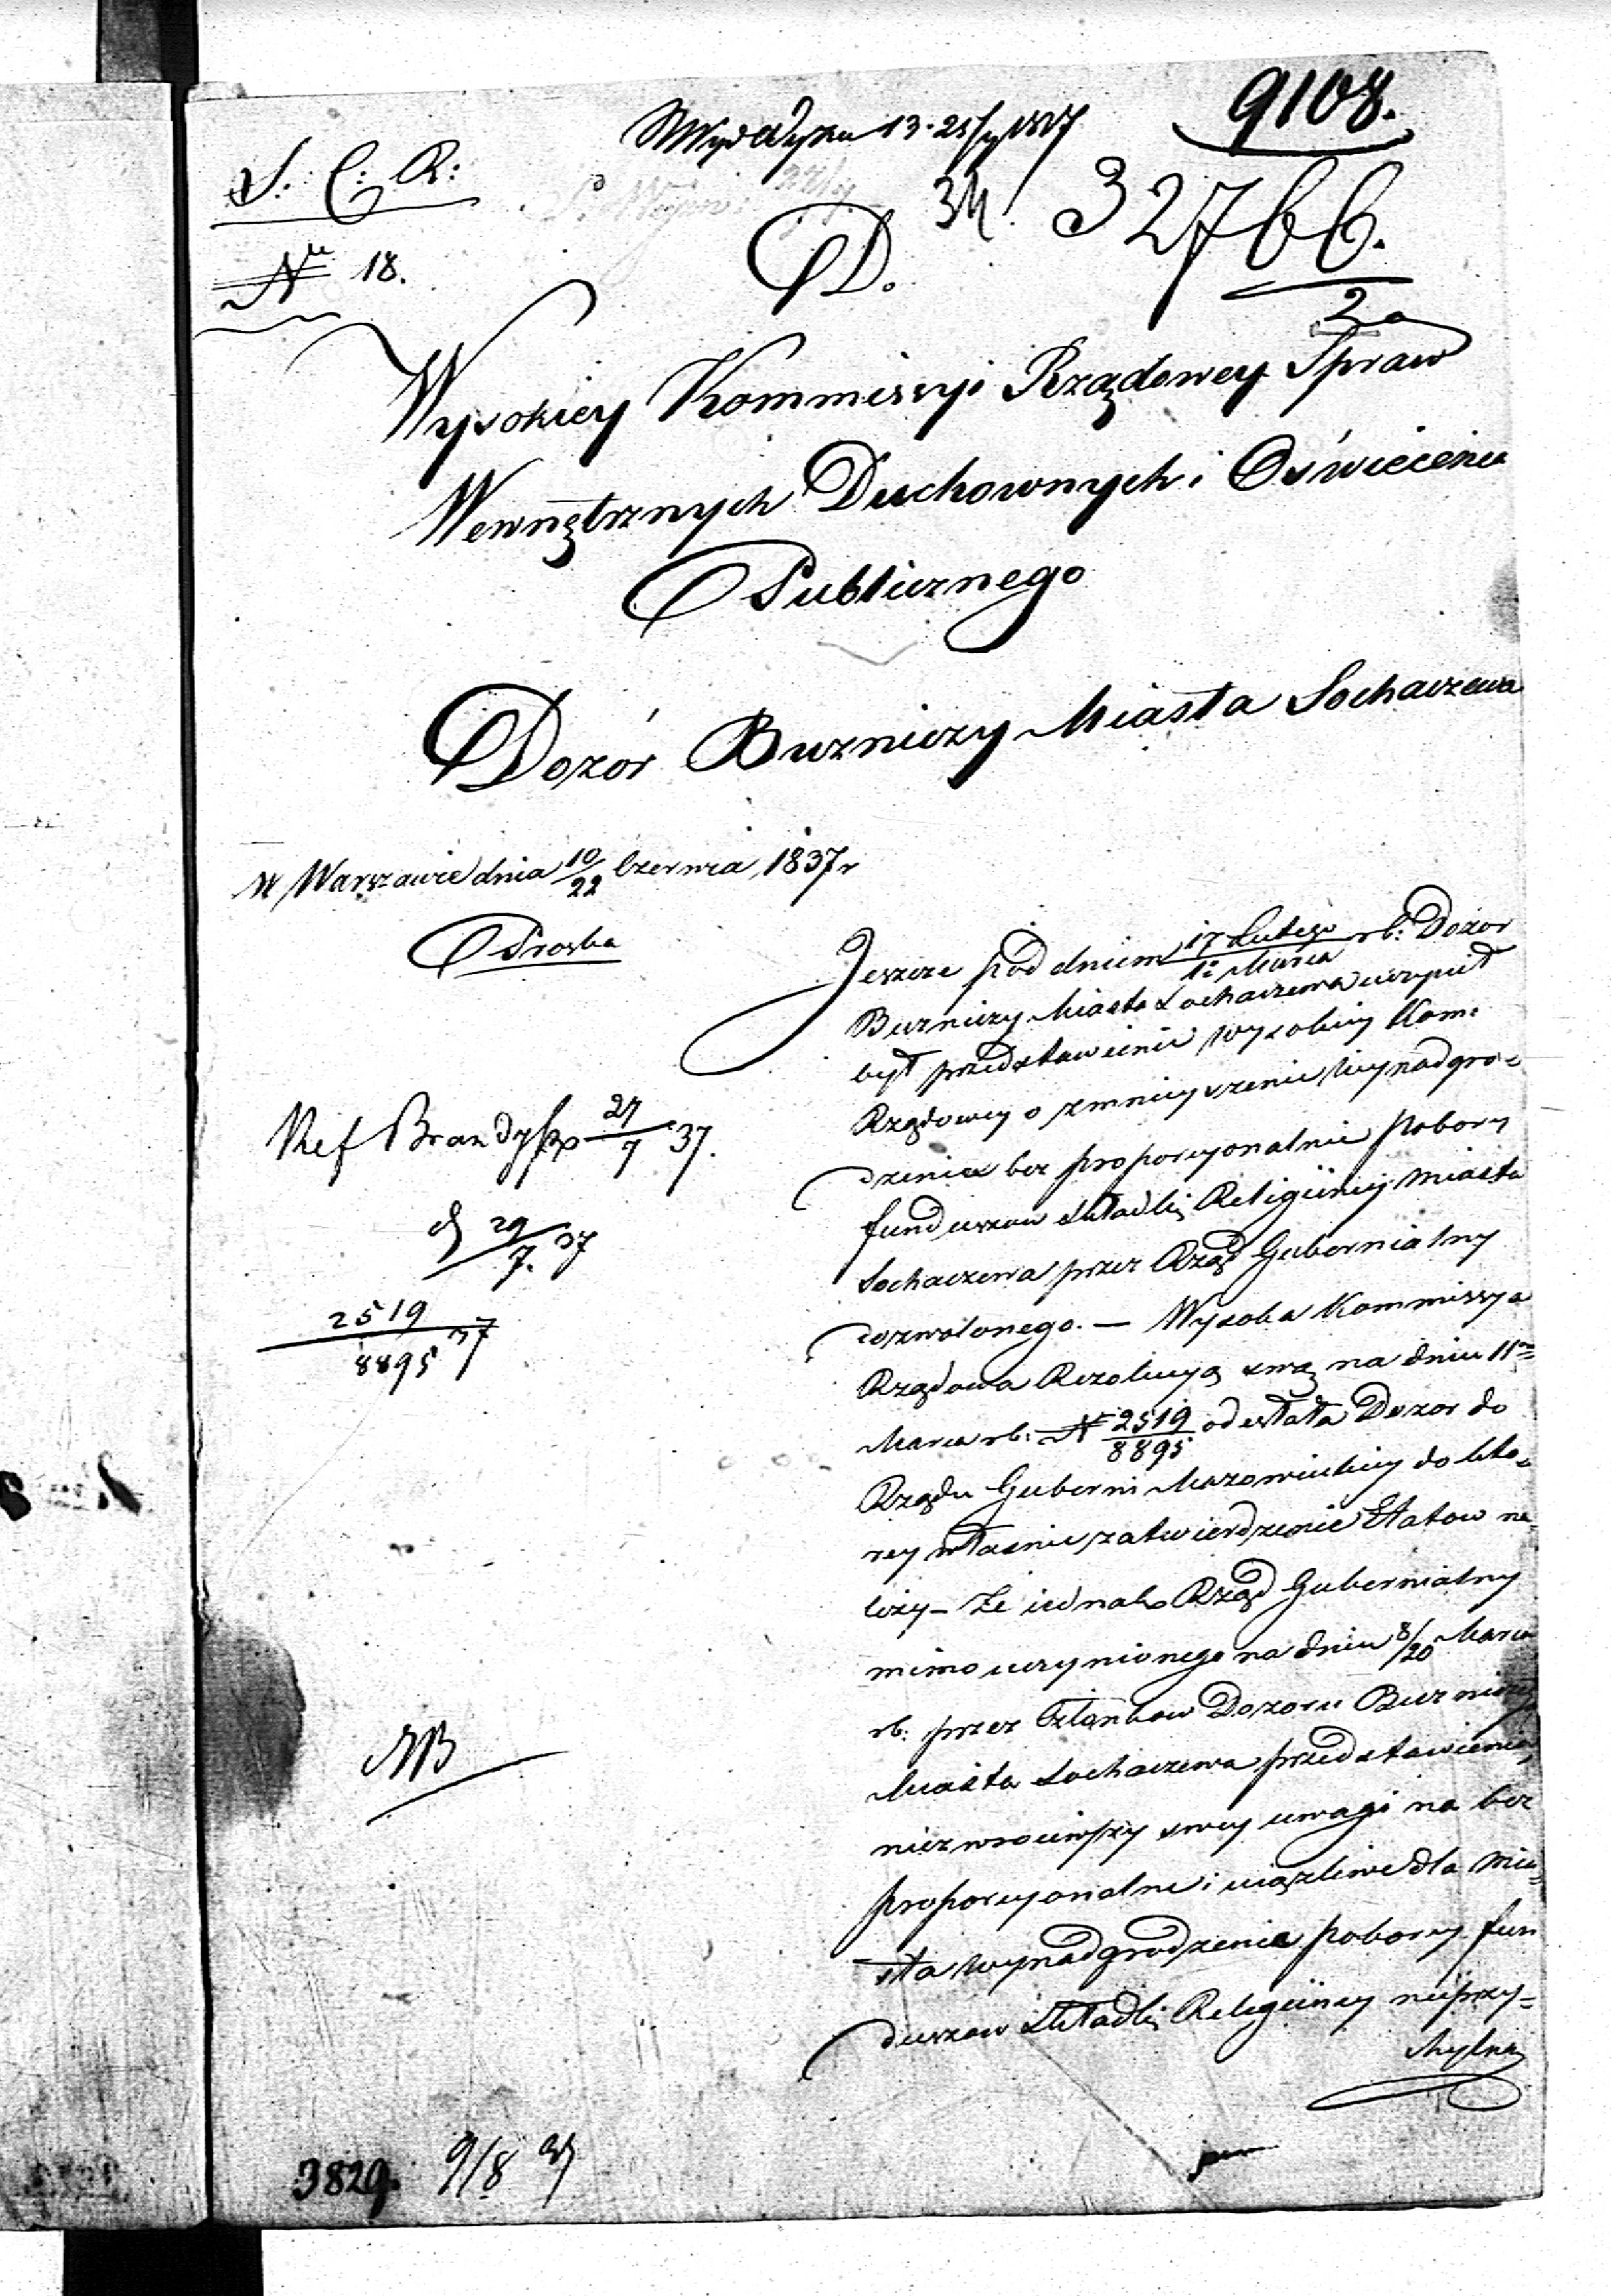 9108.
S. C. R:
34. 32766.
D.
Nr 18.
2
Wysokiey Kommissyi Rządowey Spraw
Wewnętrznych Duchownych i Oświecenia
Publicznego
Dozór Buzniczy Miasta Sochaczewa
W Warszawie dnia 10/22 Czerwca, 1837 r
Prosba
Jeszcze pod dniem 17 Lutego/1o Marca rb: Dozor
Buzniczy Miasta Sochaczewa uczynił
był przedstawienie Wysokiey Kom:
Rządowey o zmnieyszenie Wynadgro=
dzenia bez proporcyonalnie Pobory
funduszow Składki Religiiney Miasta
Sochaczewa przez Rząd Gubernialny
dozwolonego. — Wysoka Kommissya
Rządowa Rezolucyą swą na dniu 11m
Marca rb: N 2519/8895 odesłała Dozor do
Rządu Guberni Mazowieckiey do któ=
rey właśnie zatwierdzenie Etatow na=
leży — Że iednak Rząd Gubernialny
mimo uczynionego na dniu 8/20 Marca
rb: przez Członkow Dozoru Buzniczego
Miasta Sochaczewa przedstawienia,
niezwrociwszy swey uwagi na bez
proporcyonalne i uciążliwe dla Mia=
sta wynadgrodzenie Pobory fun
duszow Składki Religiiney nieprzy=
chylną
Ref Brandysz 27/7 37.
29/7. 37
2519/8895 37
NB
3829. 9/8 37